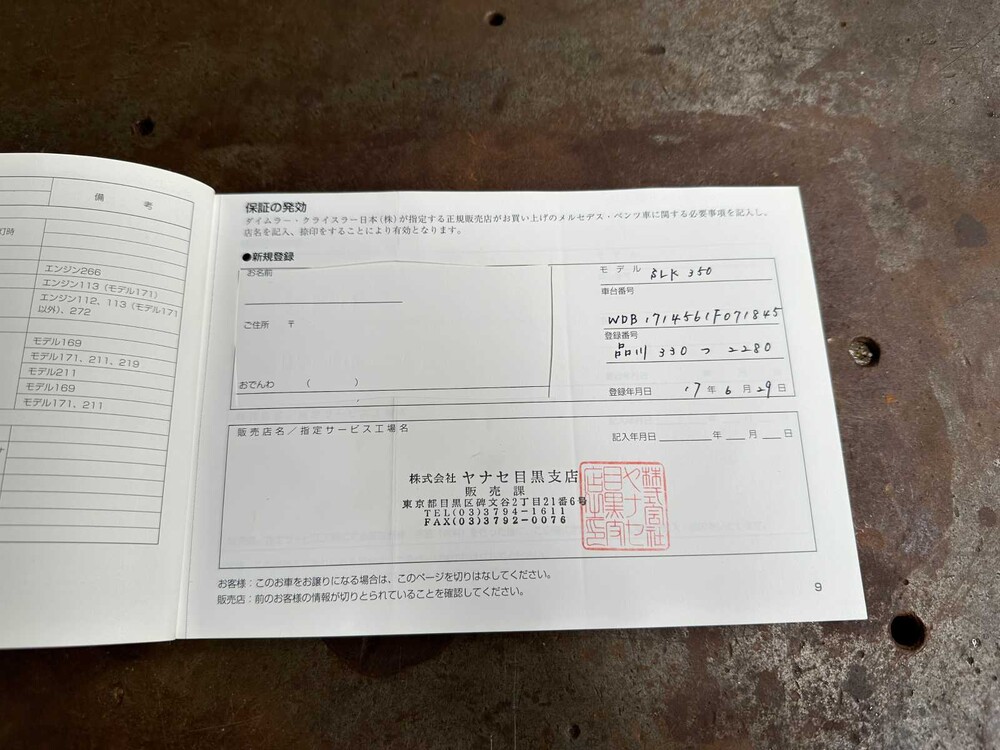 備 考
灯時
エンジン266
エンジン113（モデル171）
エンジン112、113（モデル171
以外）、272
モデル169
モデル171、211、219
モデル211
モデル169
モデル171、211
保証の発効
ダイムラー・クライスラー日本(株)が指定する正規販売店がお買い上げのメルセデス・ベンツ車に関する必要事項を記入し、
店名を記入、捺印をすることにより有効となります。
●新規登録
お名前
ご住所 〒
おでんわ （ ）
モデル SLK 350
車台番号
WDB1714561F071845
登録番号
品川 330 つ 2280
登録年月日 '17 年 6 月 29 日
販売店名／指定サービス工場名
記入年月日 年 月 日
株式会社 ヤナセ目黒支店
販売課
東京都目黒区碑文谷2丁目21番6号
TEL(03)3794-1611
FAX(03)3792-0076
株式会社
ヤナセ
目黒支
店之印
お客様：このお車をお譲りになる場合は、このページを切りはなしてください。
販売店：前のお客様の情報が切りとられていることを確認してください。
9